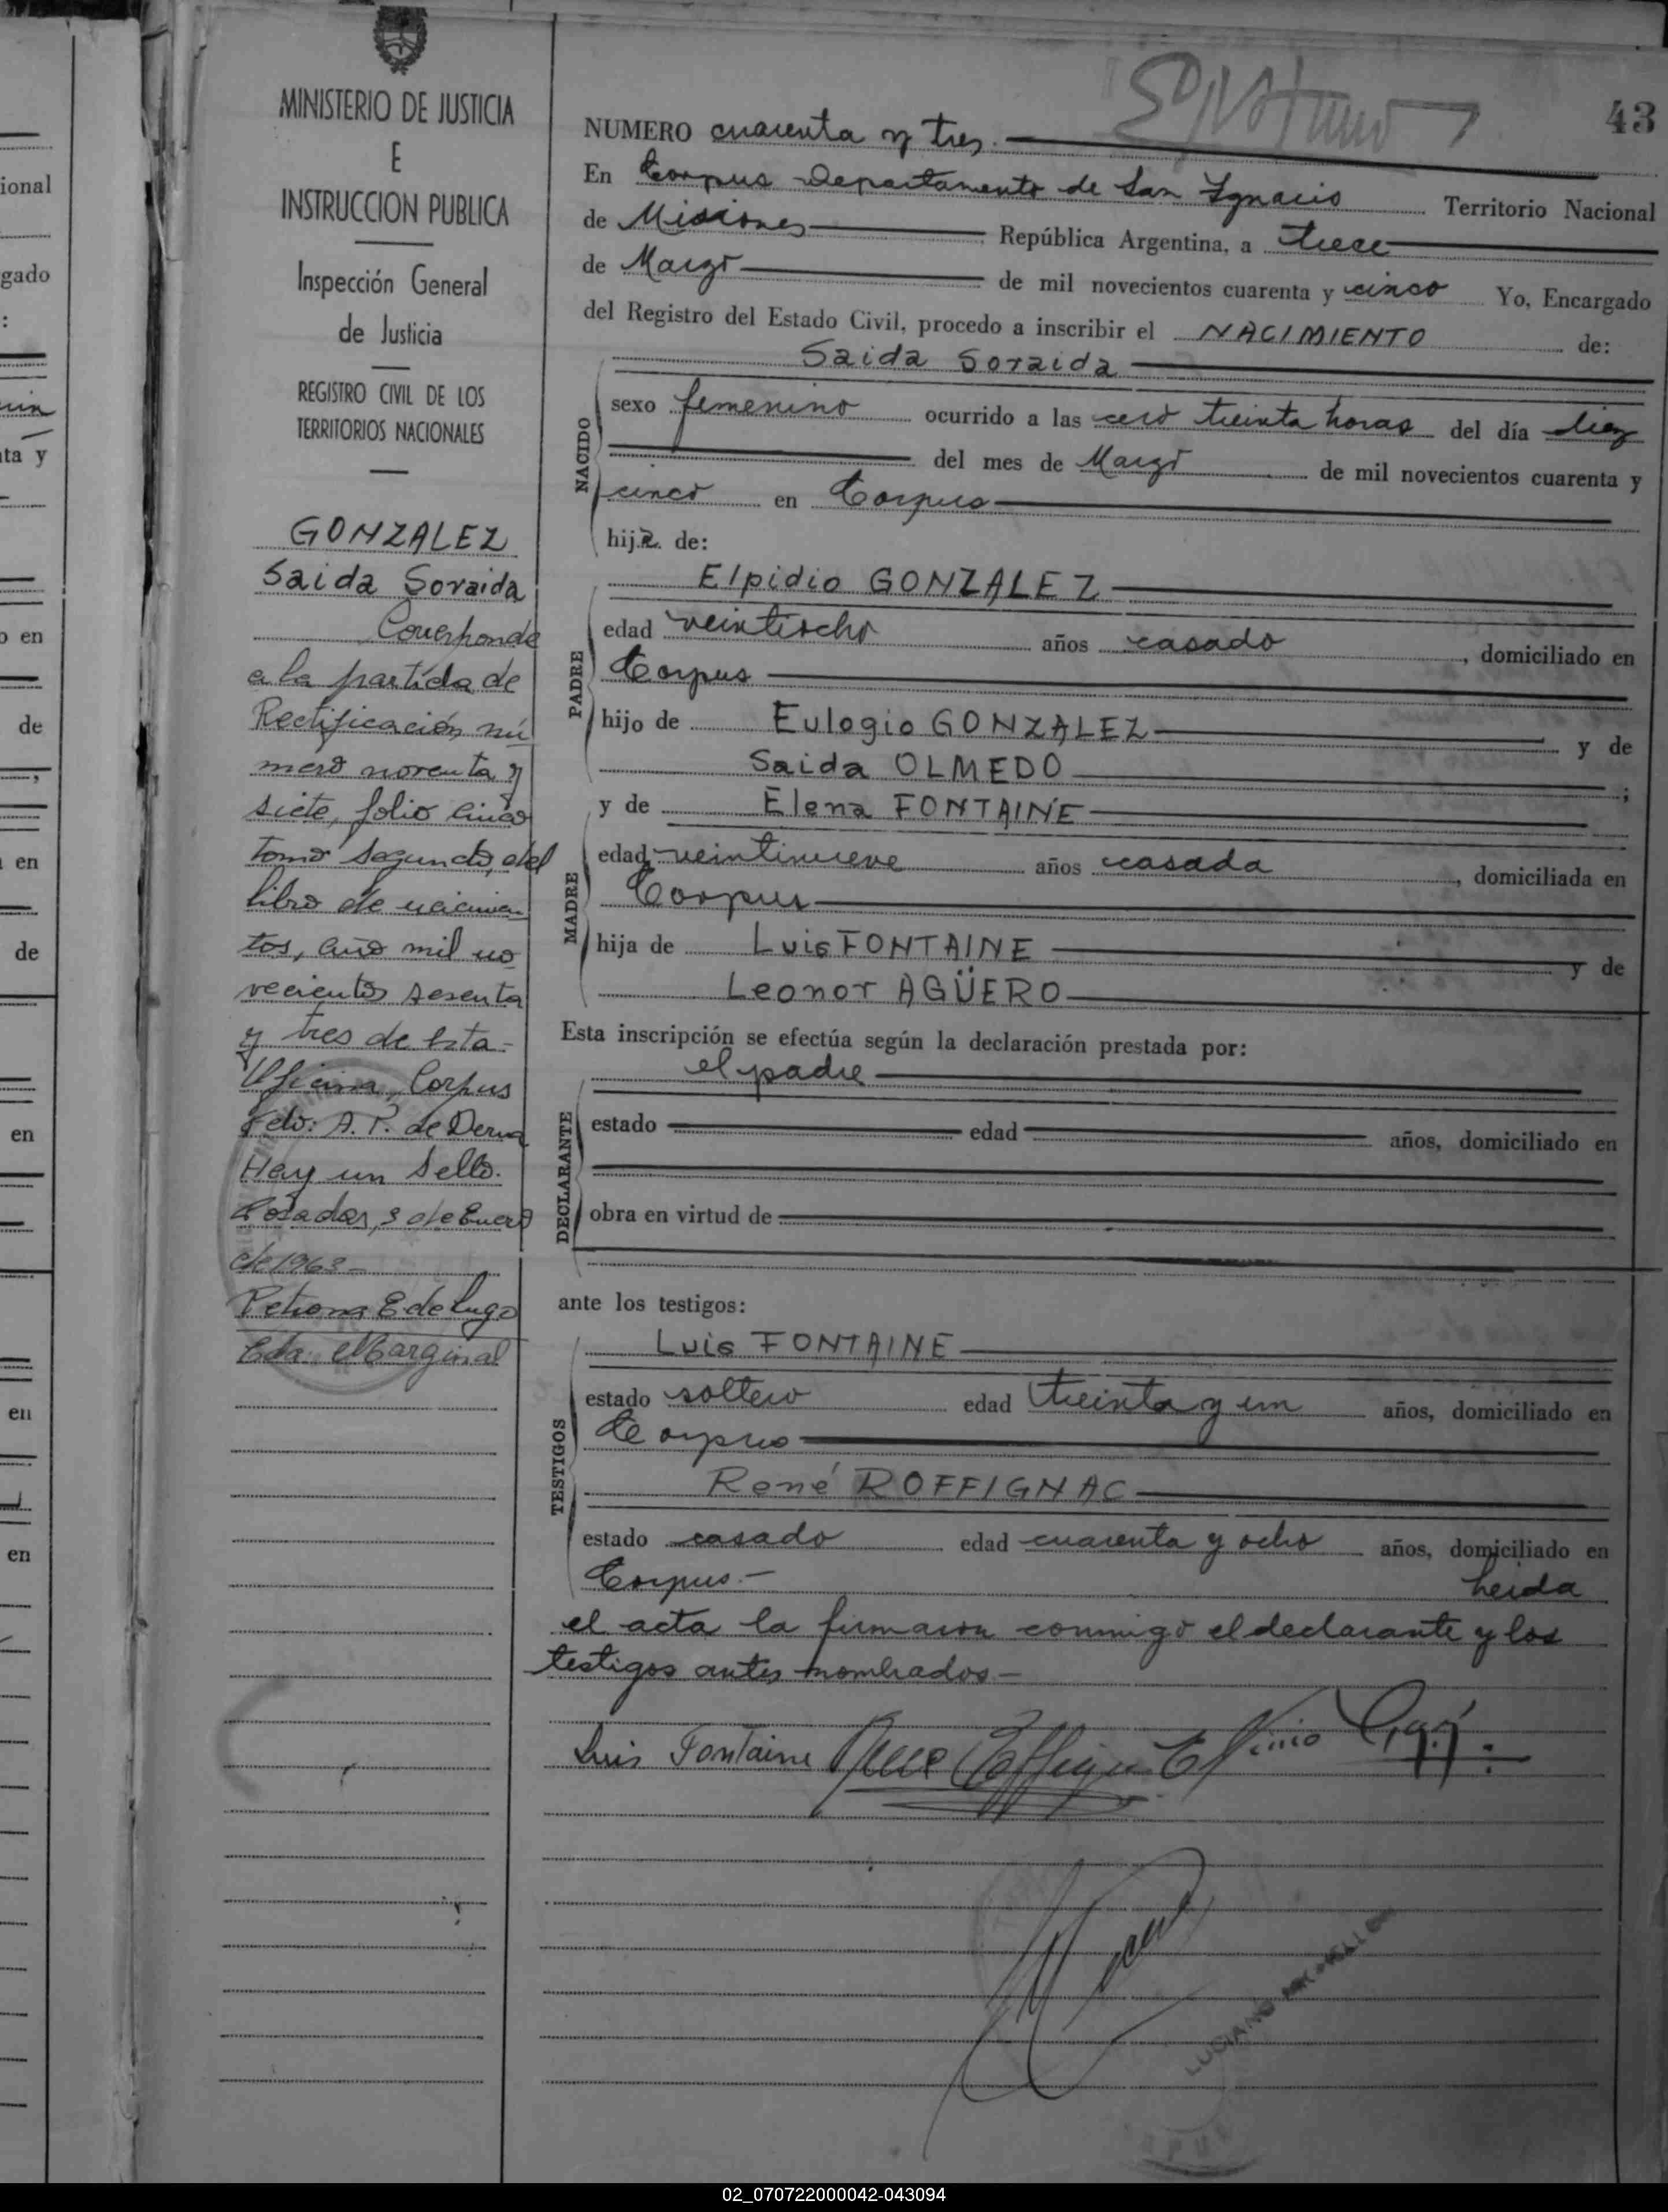 43
MINISTERIO DE JUSTICIA
E
INSTRUCCION PUBLICA
Inspección General
de Justicia
REGISTRO CIVIL DE LOS
TERRITORIOS NACIONALES
GONZALEZ
Saida Soraida
Corresponde
a la partida de
Rectificación nú
mero noventa y
siete, folio cinco
tomo segundo, del
libro de nacimien
tos, año mil no
vecientos sesenta
y tres de esta
Oficina, Corpus
Fdo: A. P. de
Hay un sello.
Posadas, 3 de Enero
de 1963-
Petrona E de Lugo
Eda. Marginal
NUMERO cuarenta y tres.
En Corpus Departamento de San Ignacio Territorio Nacional
de Misiones República Argentina, a trece
de Marzo de mil novecientos cuarenta y cinco Yo, Encargado
del Registro del Estado Civil, procedo a inscribir el NACIMIENTO de:
Saida Soraida
NACIDO
sexo femenino ocurrido a las cero treinta horas del día diez
del mes de Marzo de mil novecientos cuarenta y
cinco en Corpus
hija de:
PADRE
Elpidio GONZALEZ
edad veintiocho años casado, domiciliado en
Corpus
hijo de Eulogio GONZALEZ y de
Saida OLMEDO ;
MADRE
y de Elena FONTAINE
edad veintinueve años casada, domiciliada en
Corpus
hija de Luis FONTAINE y de
Leonor AGÜERO
Esta inscripción se efectúa según la declaración prestada por:
el padre
DECLARANTE
estado edad años, domiciliado en
obra en virtud de
ante los testigos:
TESTIGOS
Luis FONTAINE
estado soltero edad treinta y un años, domiciliado en
Corpus
René ROFFIGNAC
estado casado edad cuarenta y ocho años, domiciliado en
Corpus.- Leida
el acta la firmaron conmigo el declarante y los
testigos antes nombrados-
Luis Fontaine
LUCIANO
ional
gado
:
ta y
o en
de
en
de
en
en
en
02_070722000042-043094